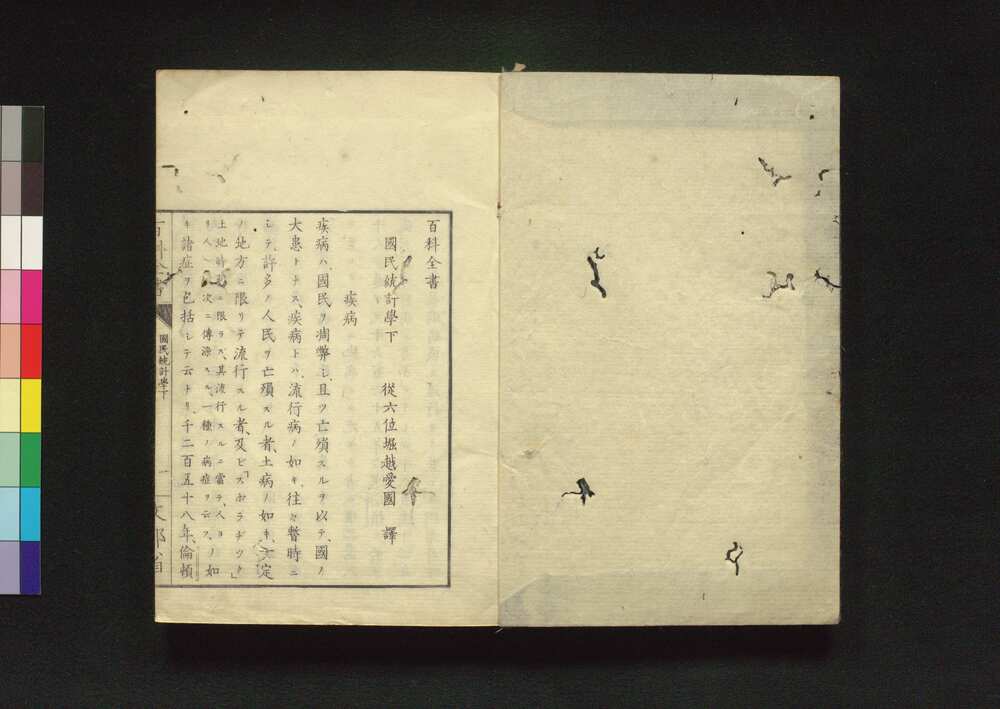 百科全書
國民統計學下 從六位堀越愛國 譯
疾病
疾病ハ、國民ヲ凋弊シ、且ツ亡殞スルヲ以テ、國ノ
大患トナス、疾病トハ、流行病ノ如キ、往々暫時ニ
シテ、許多ノ人民ヲ亡殞スル者、土病ノ如キ、一定
ノ地方ニ限リテ流行スル者、及ビ「スポラヂック」
土地時ニ限ラス、其流行スルニ當テ、人ヨ
リ人ヘ次ニ傳染スル、一種ノ病症ヲ云フ、ノ如
キ諸症ヲ包括シテ云トリ、千二百五十八年、倫頓
百科全書
國民統計學下
一
文部省